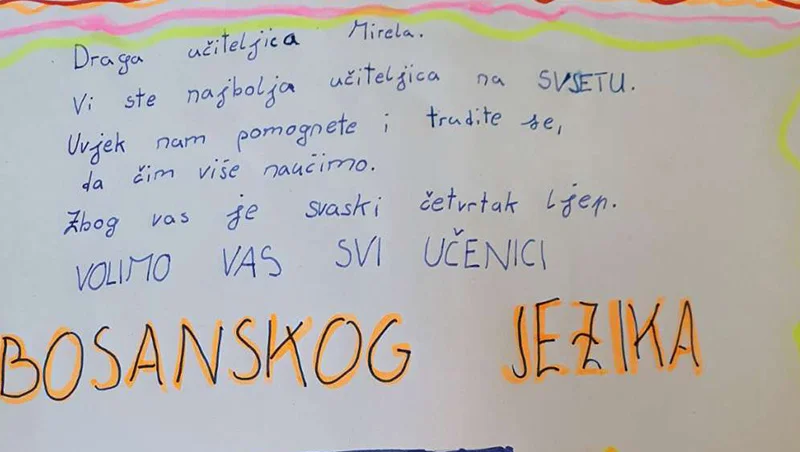 Draga učiteljica Mirela.
Vi ste najbolja učiteljica na SVSETU.
Uvjek nam pomognete i trudite se,
da čim više naučimo.
Zbog vas je svaski četvrtak ljep.
VOLIMO VAS SVI UČENICI
BOSANSKOG JEZIKA